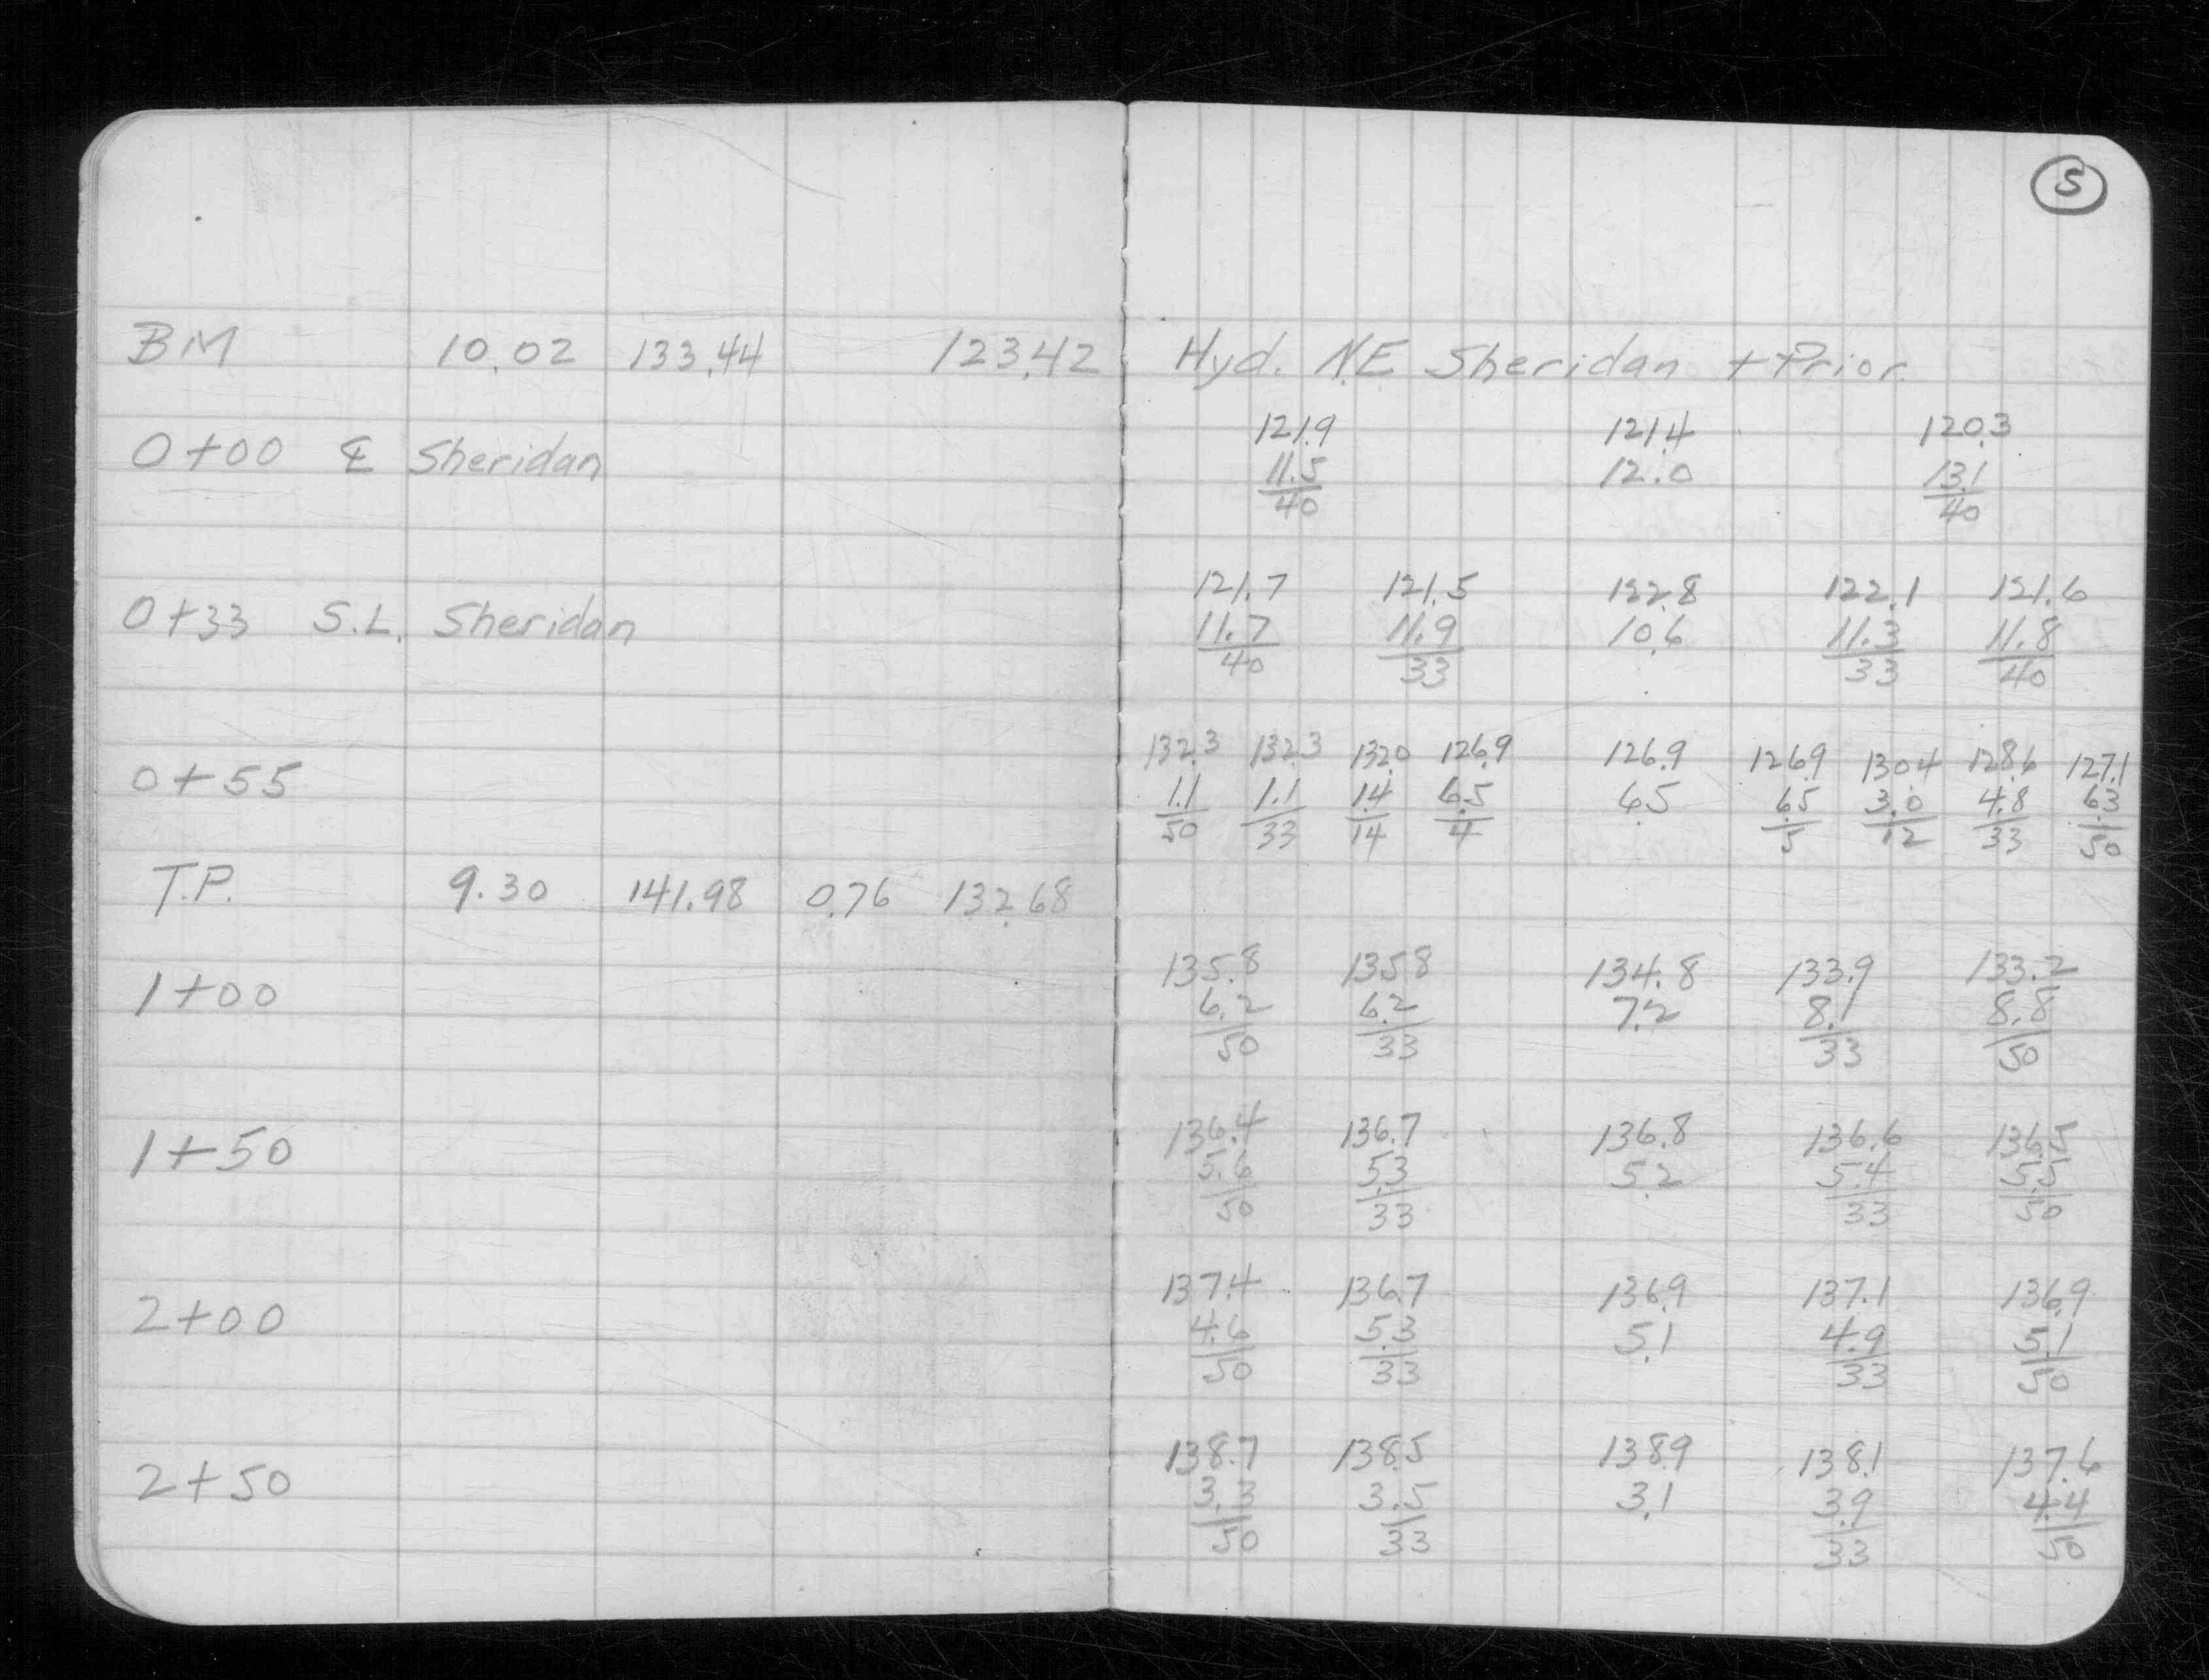 5
BM 10.02 133.44 123.42 Hyd. N.E Sheridan + Prior
121.9 121.4 120.3
0+00 ℄ Sheridan 11.5 12.0 13.1
40 40
121.7 121.5 122.8 122.1 121.6
0+33 S.L. Sheridan 11.7 11.9 10.6 11.3 11.8
40 33 33 40
132.3 132.3 132.0 126.9 126.9 126.9 130.4 128.6 127.1
0+55 1.1 1.1 1.4 6.5 6.5 6.5 3.0 4.8 6.3
50 33 14 4 5 12 33 50
T.P. 9.30 141.98 0.76 132.68
135.8 135.8 134.8 133.9 133.2
1+00 6.2 6.2 7.2 8.1 8.8
50 33 33 50
136.4 136.7 136.8 136.6 136.5
1+50 5.6 5.3 5.2 5.4 5.5
50 33 33 50
137.4 136.7 136.9 137.1 136.9
2+00 4.6 5.3 5.1 4.9 5.1
50 33 33 50
138.7 138.5 138.9 138.1 137.6
2+50 3.3 3.5 3.1 3.9 4.4
50 33 33 50